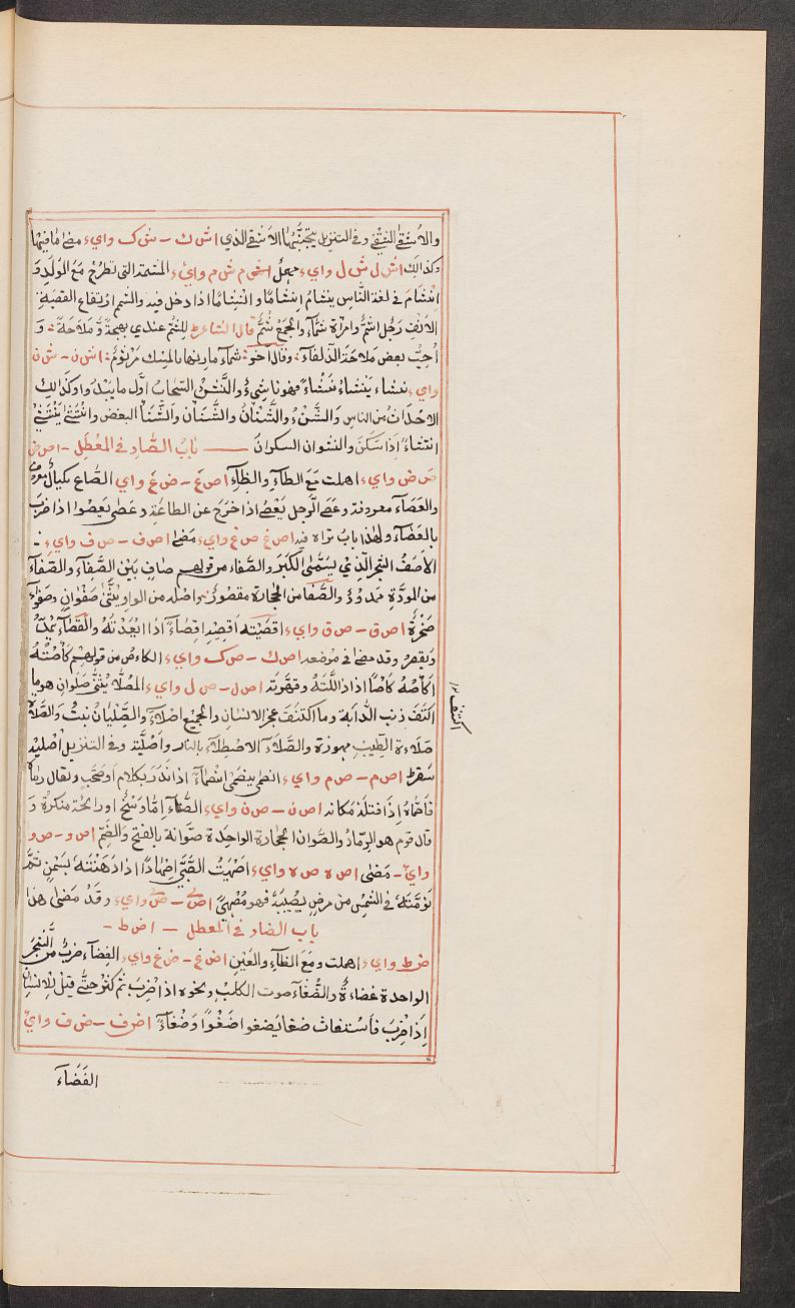 والاشقى الشقى وفى التنزيل يتجنبها الاشقى الذى اش ك – ش ك واى مضى ما فيها
وكذلك اش ل ش ل واى مهمل اش م ش م واى المشيمة التى تطرح مع المولد و
انشام فى لغة الناس ينشام انشاما و انشاما اذا دخل فيه والشمم ارتفاع القصبة
الانف رجل اشم وامراة شماء والجمع شم قال الشاعر للشم عندى بهجة وملاحة و
احب بعض ملاحة الذلفاء وقال آخر شماء مارنها بالمسك مرثوم اش ن – ش ن
واى نشاء ينشاء نشاء فهو ناشىء والنشئ السحاب اول ما يبدوا وكذلك
الاحداث من الناس والشنء والشنان والشنان والشنأ البعض وانتشى ينتشى
انتشاء اذا سكن والنشوان السكران باب الصاد فى المعطل – اص ض
ص ض واى اهملت مع الطاء والظاء اص ع – ص ع واى الصاع مكيال معروف
والعصاء معروفة وعصى الرجل يعصى اذا خرج عن الطاعة وعصى يعصوا اذا ضرب
بالعصاء ولهذا باب تراه فيه اص غ ص غ واى مضى اص ف – ص ف واى
الاصف الشجر الذى يسمى الكبر والصفاء من قولهم صاف بين الصفاء والصفاء
من المودة ممدود والصفا من الحجارة مقصور واصله من الواو يثنى صفوان وصفواء
صخرة اص ق – ص ق واى اقصيته اقصيه اقصاء اذا ابعدته والقصاء يمد
ويقصر وقد مضى فى موضعه اص ك – ص ك واى الكاءص من قولهم كأصته
اكأصه كأصا اذا ذللته وقهرته اص ل – ص ل واى الصلا يثنى صلوان هو ما
اكتنف ذنب الدابة وما اكتنف عجز الانسان والجميع اصلاء والصليان نبت والصلاة
صلاءة الطيب مهموزة والصلاء الاصطلاء بالنار واصليته وفى التنزيل اصليه
سقر اص م – ص م واى انصمى ينصمى انصماء اذا اندر بكلام او صخب ويقال رماه
فاصماه اذا قتله مكانه اص ن – ص ن واى الصناء اما وسخ او رائحة منكرة و
قال قوم هو الرماد والصوان الحجارة الواحدة صوانة بالفتح والضم اص و – ص و
واى – مضى اص ه ص ه واى اصهيت الصبى اصهاء اذا دهنته بسمن ثم
نومته فى الشمس من مرض يصيبه فهو مصهى اص ى – ص ى واى وقد مضى هذا
باب الضاد فى المعطل – اض ط –
ض ط واى اهملت ومع الظاء والعين اض غ – ض غ واى الغضاء ضرب من الشجر
الواحدة غضاءة والضغاء صوت الكلب ونحوه اذا ضرب ثم كثر حتى قيل للانسان
اذا ضرب فاستغاث ضغا يضغوا ضغوا وضغاء اض ف – ض ف واى
الفضاء
اكتنف